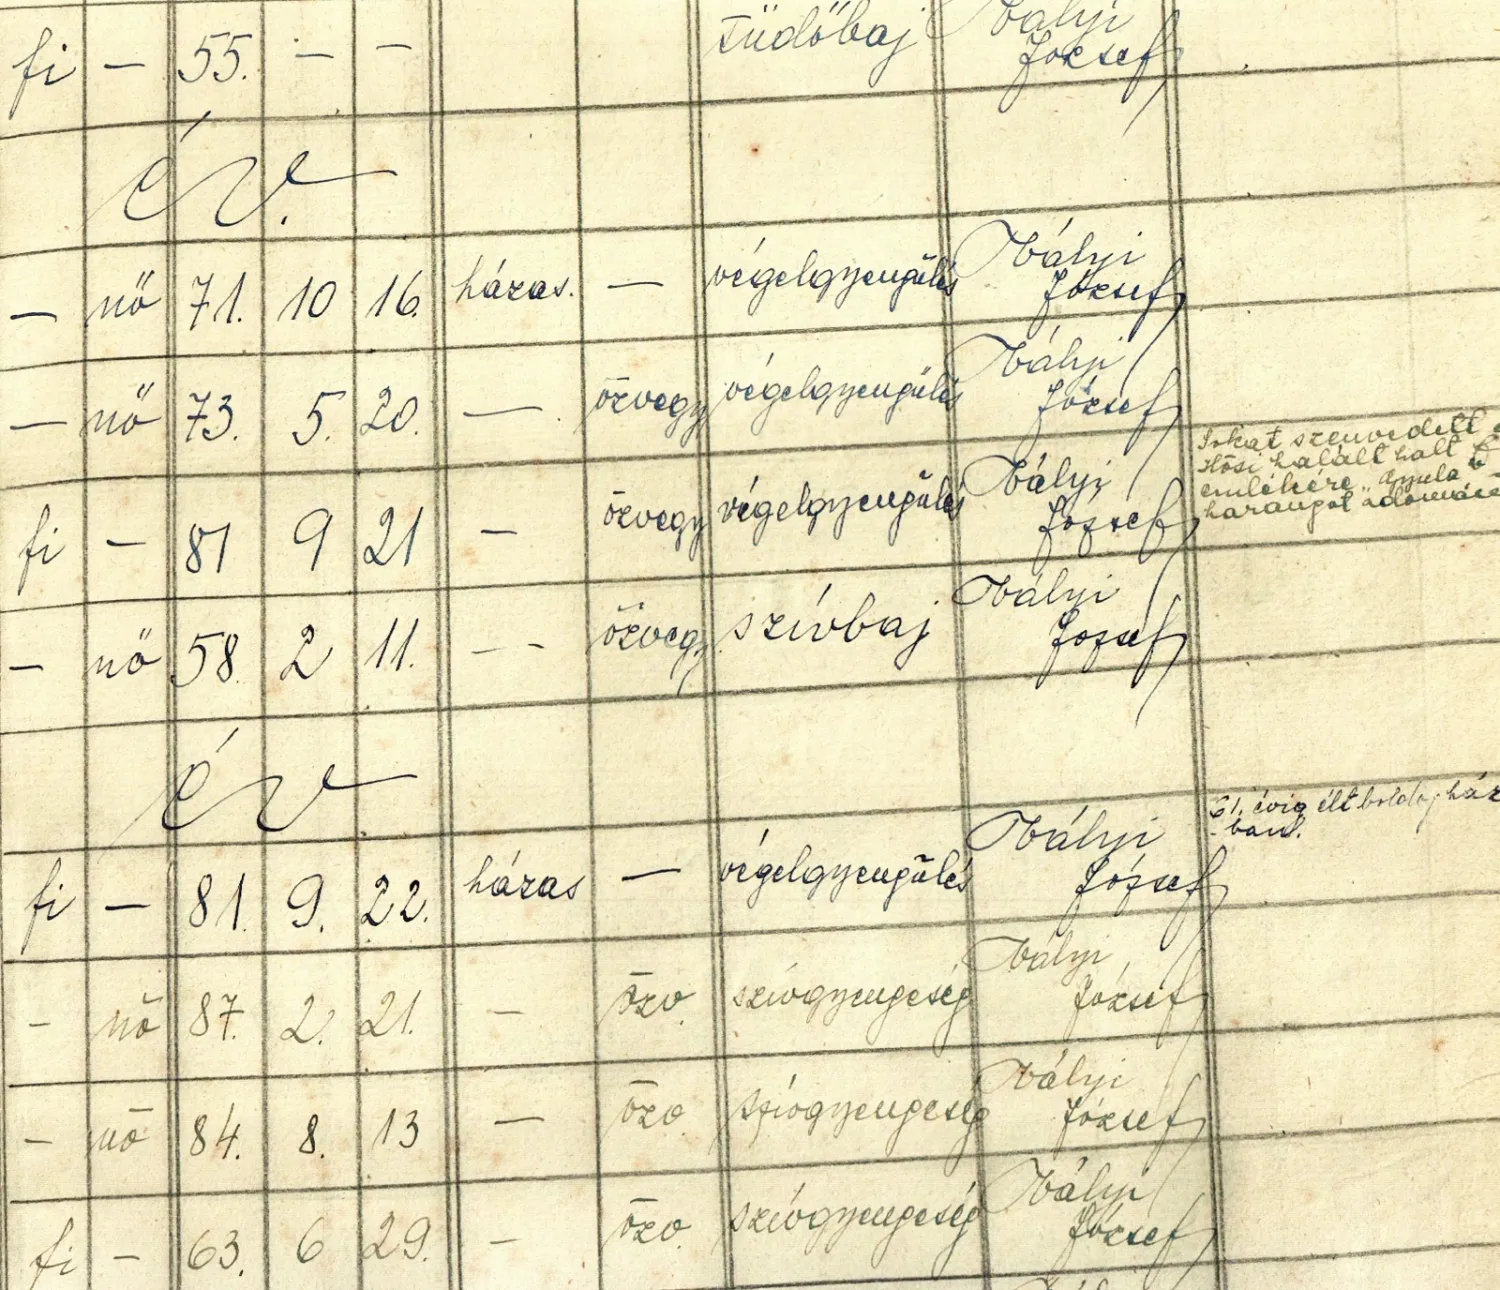 fi – 55. – – Tüdőbaj Vályi
József
év.
– nő 71. 10 16. házas. – végelgyengülés Vályi
József
– nő 73. 5. 20. – özvegy végelgyengülés Vályi
József
fi – 81 9 21 – özvegy végelgyengülés Vályi
József
Sokat szenvedett
Hősi halált halt
emlékére „Gyula
harangot adomá
– nő 58. 2 11. – - özvegy szívbaj Vályi
József
év
61. évig élt boldog ház
-ban.
fi – 81. 9. 22. házas – végelgyengülés Vályi
József
– nő 87. 2. 21. – özv. szívgyengeség Vályi
József
– nő 84. 8. 13 – özv. szívgyengeség Vályi
József
fi – 63. 6 29. – özv. szívgyengeség Vályi
József